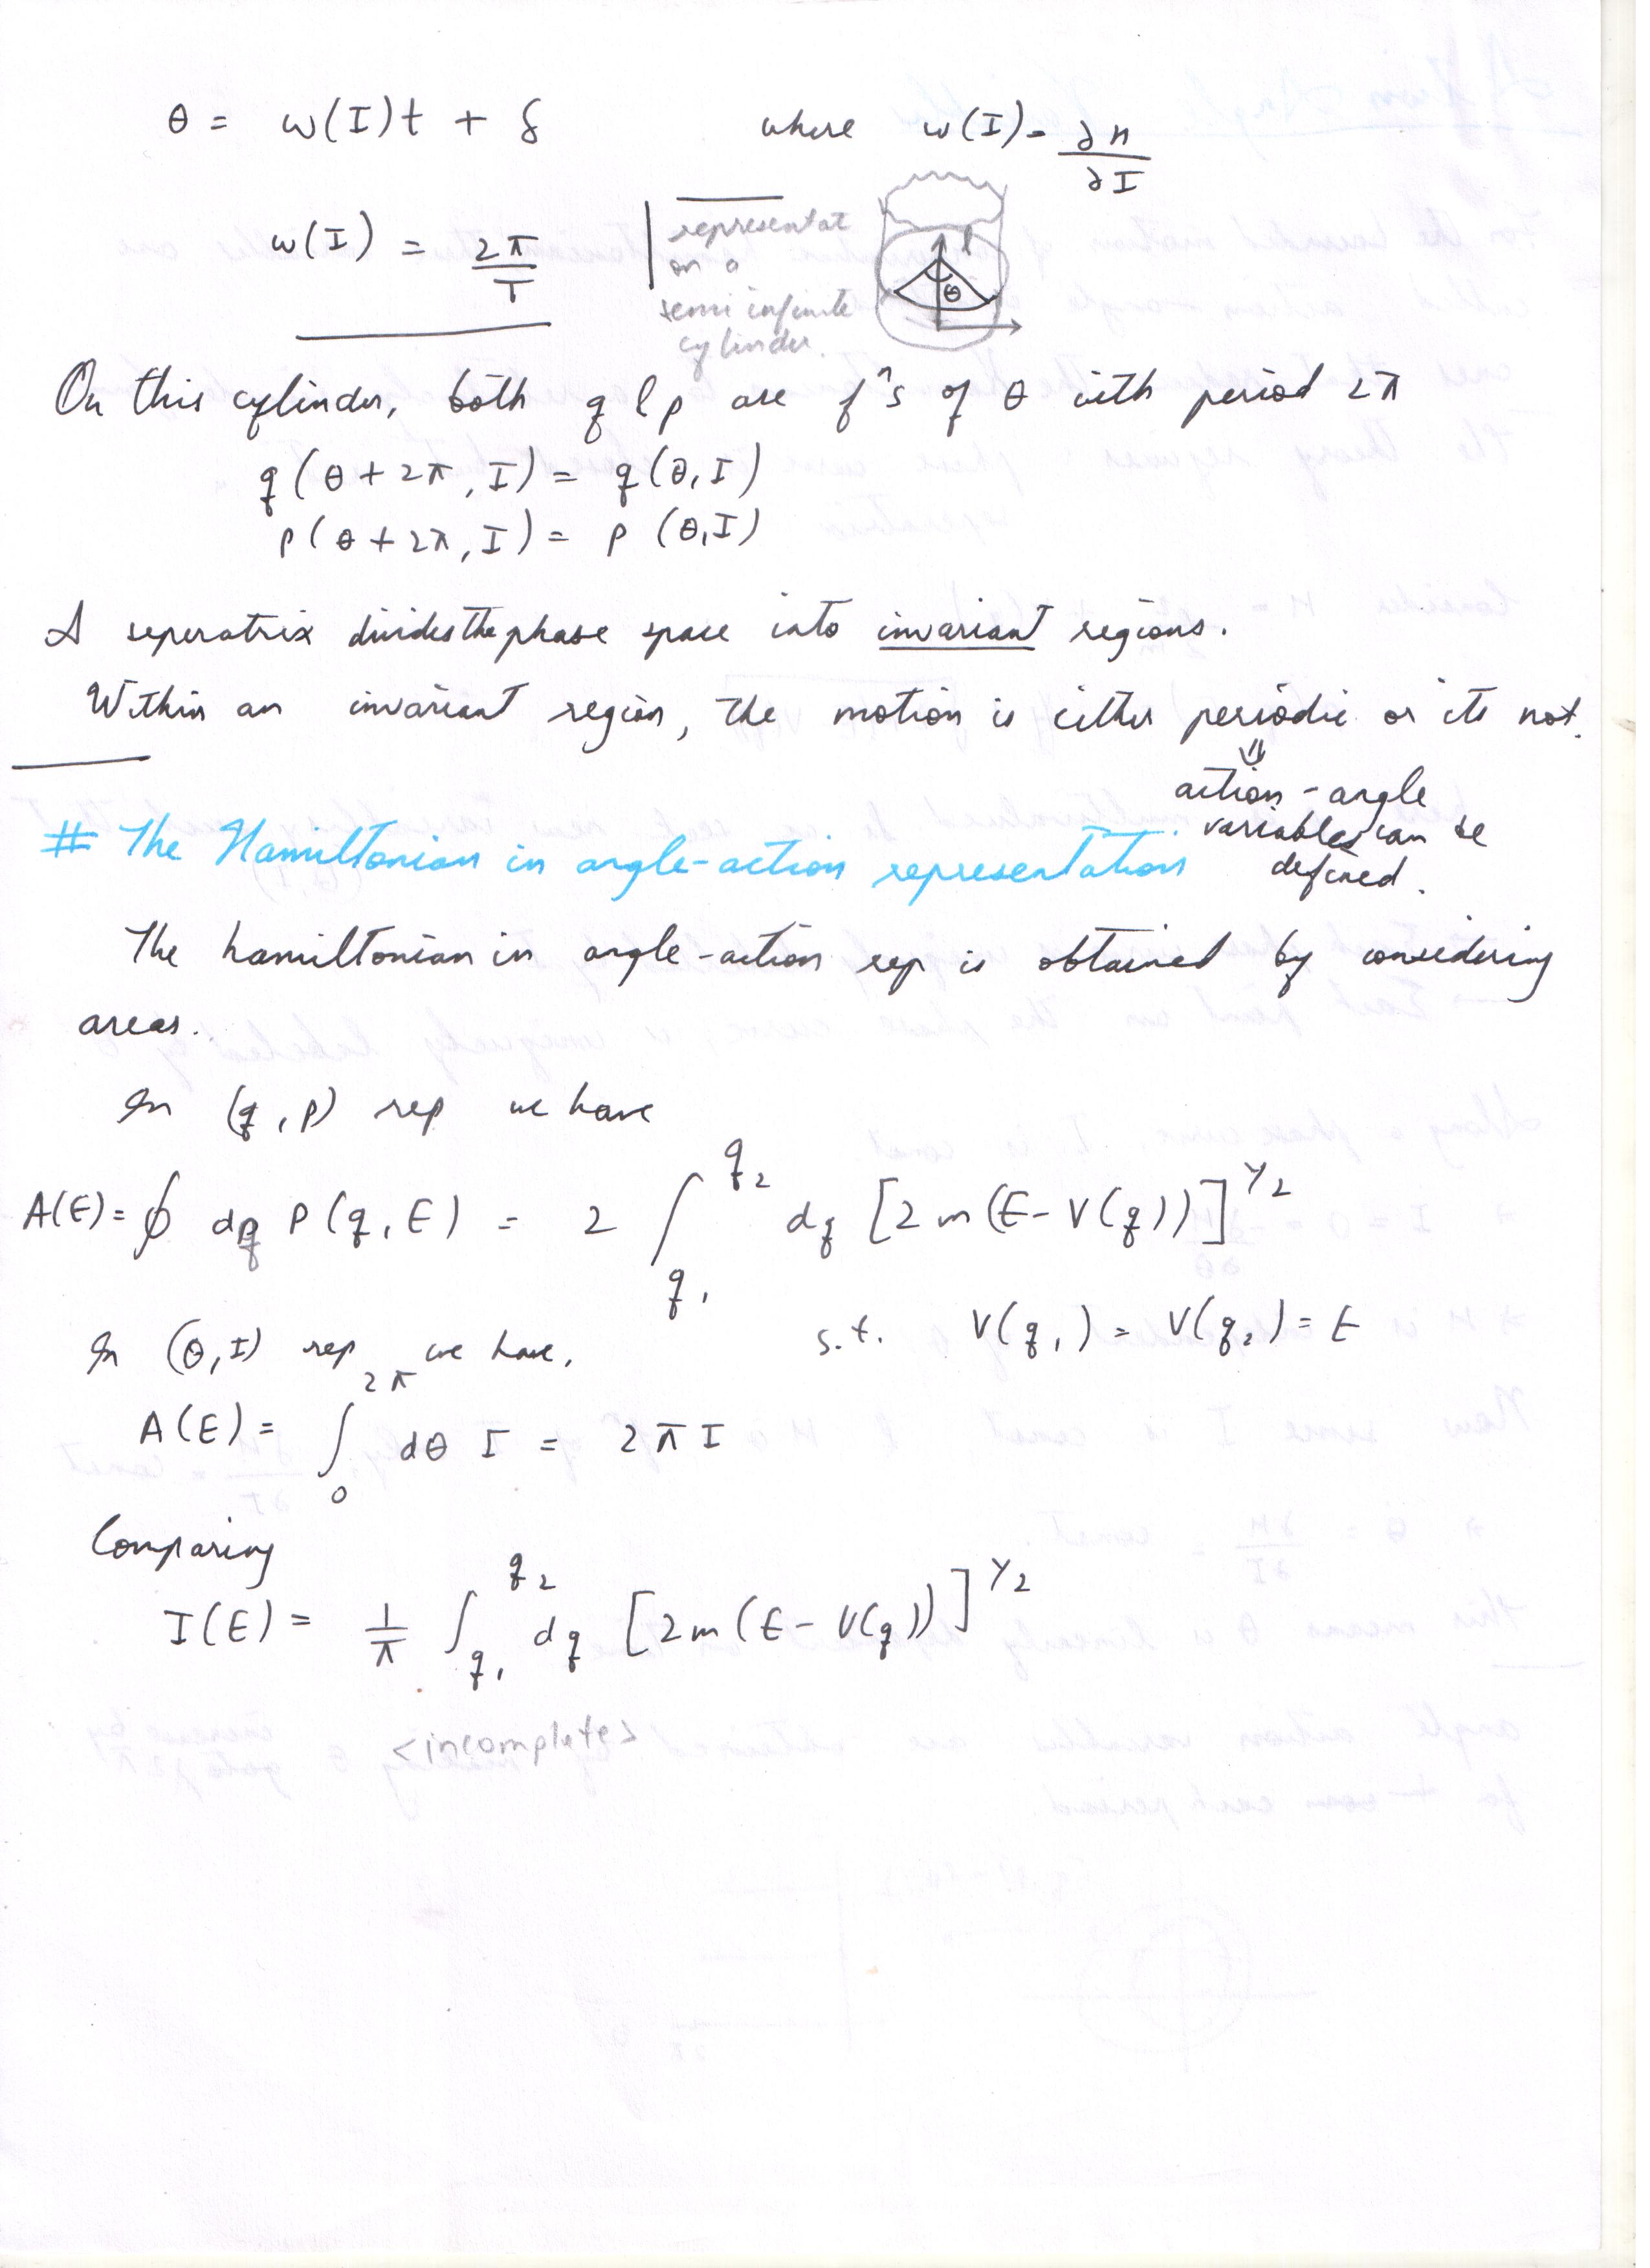 θ = ω(I)t + δ where ω(I) = ∂H/∂I
ω(I) = 2π/T
representat
on a
semi infinite
cylinder.
I
θ
On this cylinder, both q & p are fⁿs of θ with period 2π
q(θ+2π, I) = q(θ, I)
p(θ+2π, I) = p(θ, I)
A seperatrix divides the phase space into invariant regions.
Within an invariant region, the motion is either periodic or its not.
⇓
action-angle
variables can be
defined.
# The Hamiltonian in angle-action representation
The hamiltonian in angle-action rep is obtained by considering
areas.
In (q, p) rep we have
A(E) = ∮ dq p(q, E) = 2 ∫_{q₁}^{q₂} dq [2m(E-V(q))]^{1/2}
s.t. V(q₁) = V(q₂) = E
In (θ, I) rep we have,
A(E) = ∫_0^{2π} dθ I = 2πI
Comparing
I(E) = 1/π ∫_{q₁}^{q₂} dq [2m(E-V(q))]^{1/2}
<incomplete>